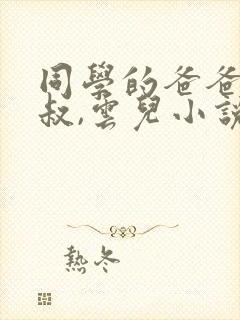 同學的爸爸
叔,雲兒小說
熱冬